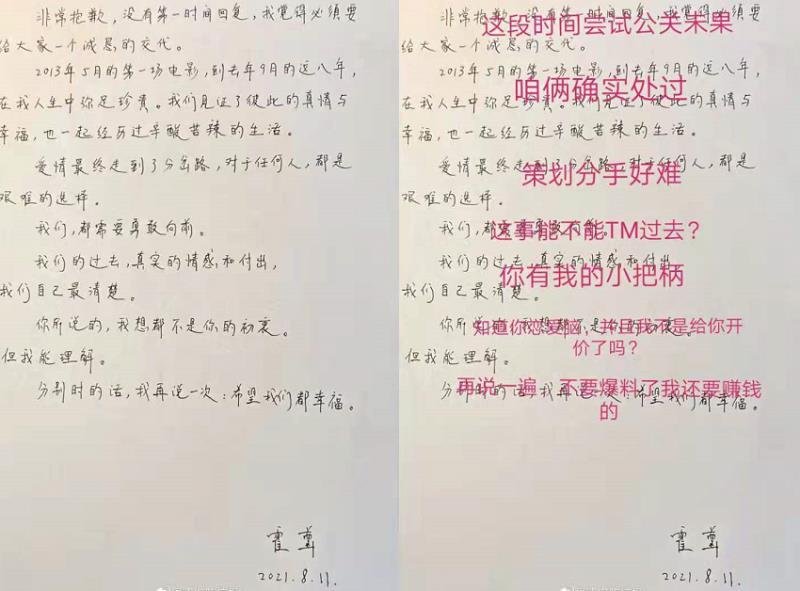 非常抱歉，没有第一时间回复，我觉得必须要
给大家一个诚恳的交代。
2013年5月的第一场电影，到去年9月的这八年，
在我人生中弥足珍贵。我们见证了彼此的真情与
幸福，也一起经历过辛酸苦辣的生活。
爱情最终走到了分岔路，对于任何人，都是
艰难的选择。
我们，都需要勇敢向前。
我们的过去，真实的情感和付出，
我们自己最清楚。
你所说的，我想都不是你的初衷。
但我能理解。
分别时的话，我再说一次：希望我们都幸福。
霍尊
2021.8.11.
非常抱歉，没有第一时间回复，我觉得必须要
这段时间尝试公关未果
给大家一个诚恳的交代。
2013年5月的第一场电影，到去年9月的这八年，
咱俩确实处过
在我人生中弥足珍贵。我们见证了彼此的真情与
幸福，也一起经历过辛酸苦辣的生活。
爱情最终走到了分岔路，对于任何人，都是
策划分手好难
艰难的选择。
我们，都需要勇敢向前。
这事能不能TM过去？
我们的过去，真实的情感和付出，
你有我的小把柄
我们自己最清楚。
你所说的，我想都不是你的初衷。
知道你恋爱脑，并且我不是给你开
价了吗？
但我能理解。
分别时的话，我再说一次：希望我们都幸福。
再说一遍，不要爆料了我还要赚钱
的
霍尊
2021.8.11.